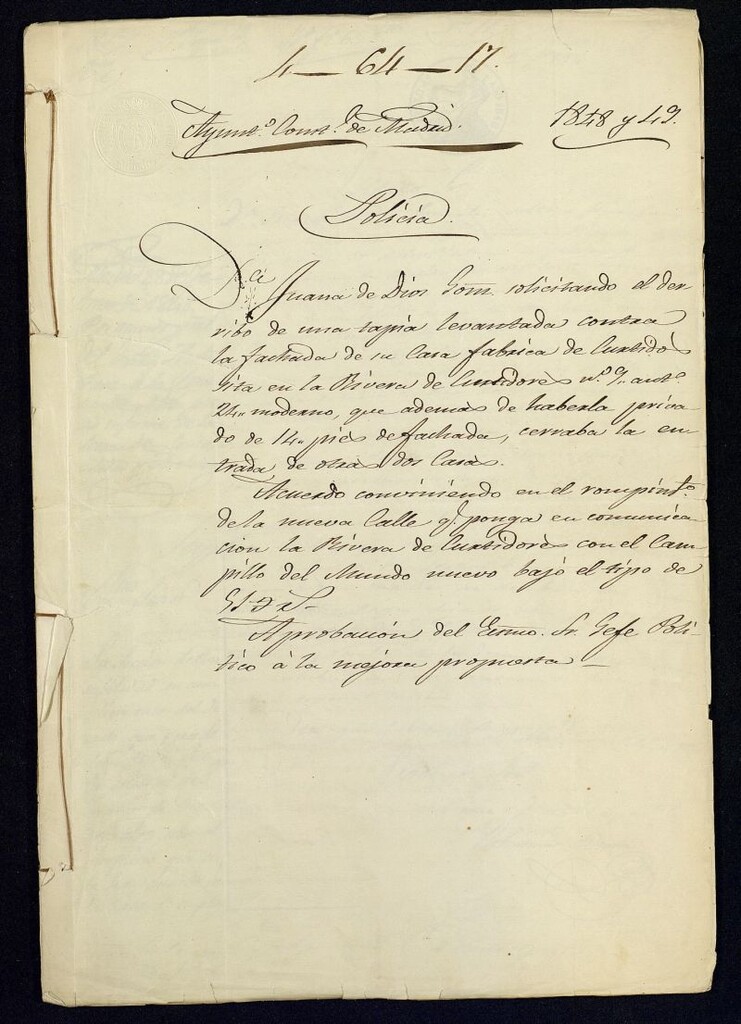 4 — 64 — 17.
Aynnt.º Const.l de Madrid. 1848 y 49.
Policía.
Juana de Dios solicitando el der-
ribo de una tapia levantada contra
la fachada de su Casa fabrica de Curtidos
sita en la Rivera de Curtidores nº 9, antº
24,, moderno, que ademas de haberla priva-
do de 14,, pies de fachada, cerraba la en-
trada de otras dos Casas.
Acuerdo conviniendo en el rompimtº
de la nueva Calle q.e ponga en comunica-
cion la Rivera de Curtidores con el Cam-
pillo del Mundo nuevo bajo el tipo de
Aprobacion del Exmo. Sr. Gefe Poli-
tico à la mejora propuesta —